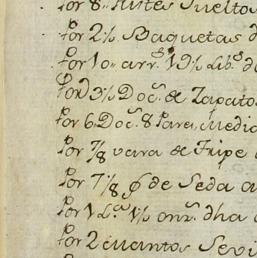 Por 8. Sueltos
Por 2½ Baquetas d
Por 10 arr.s 19½ Lib.s d
Por 3½ Doc.s de Zapatos
Por 6 Doc.s 8 Pares Media
Por 7/8 vara de Tripe
Por 7 1/8 de Seda a
Por 1 L.a 1½ onz.s dha
Por 2 cuantos Sevi